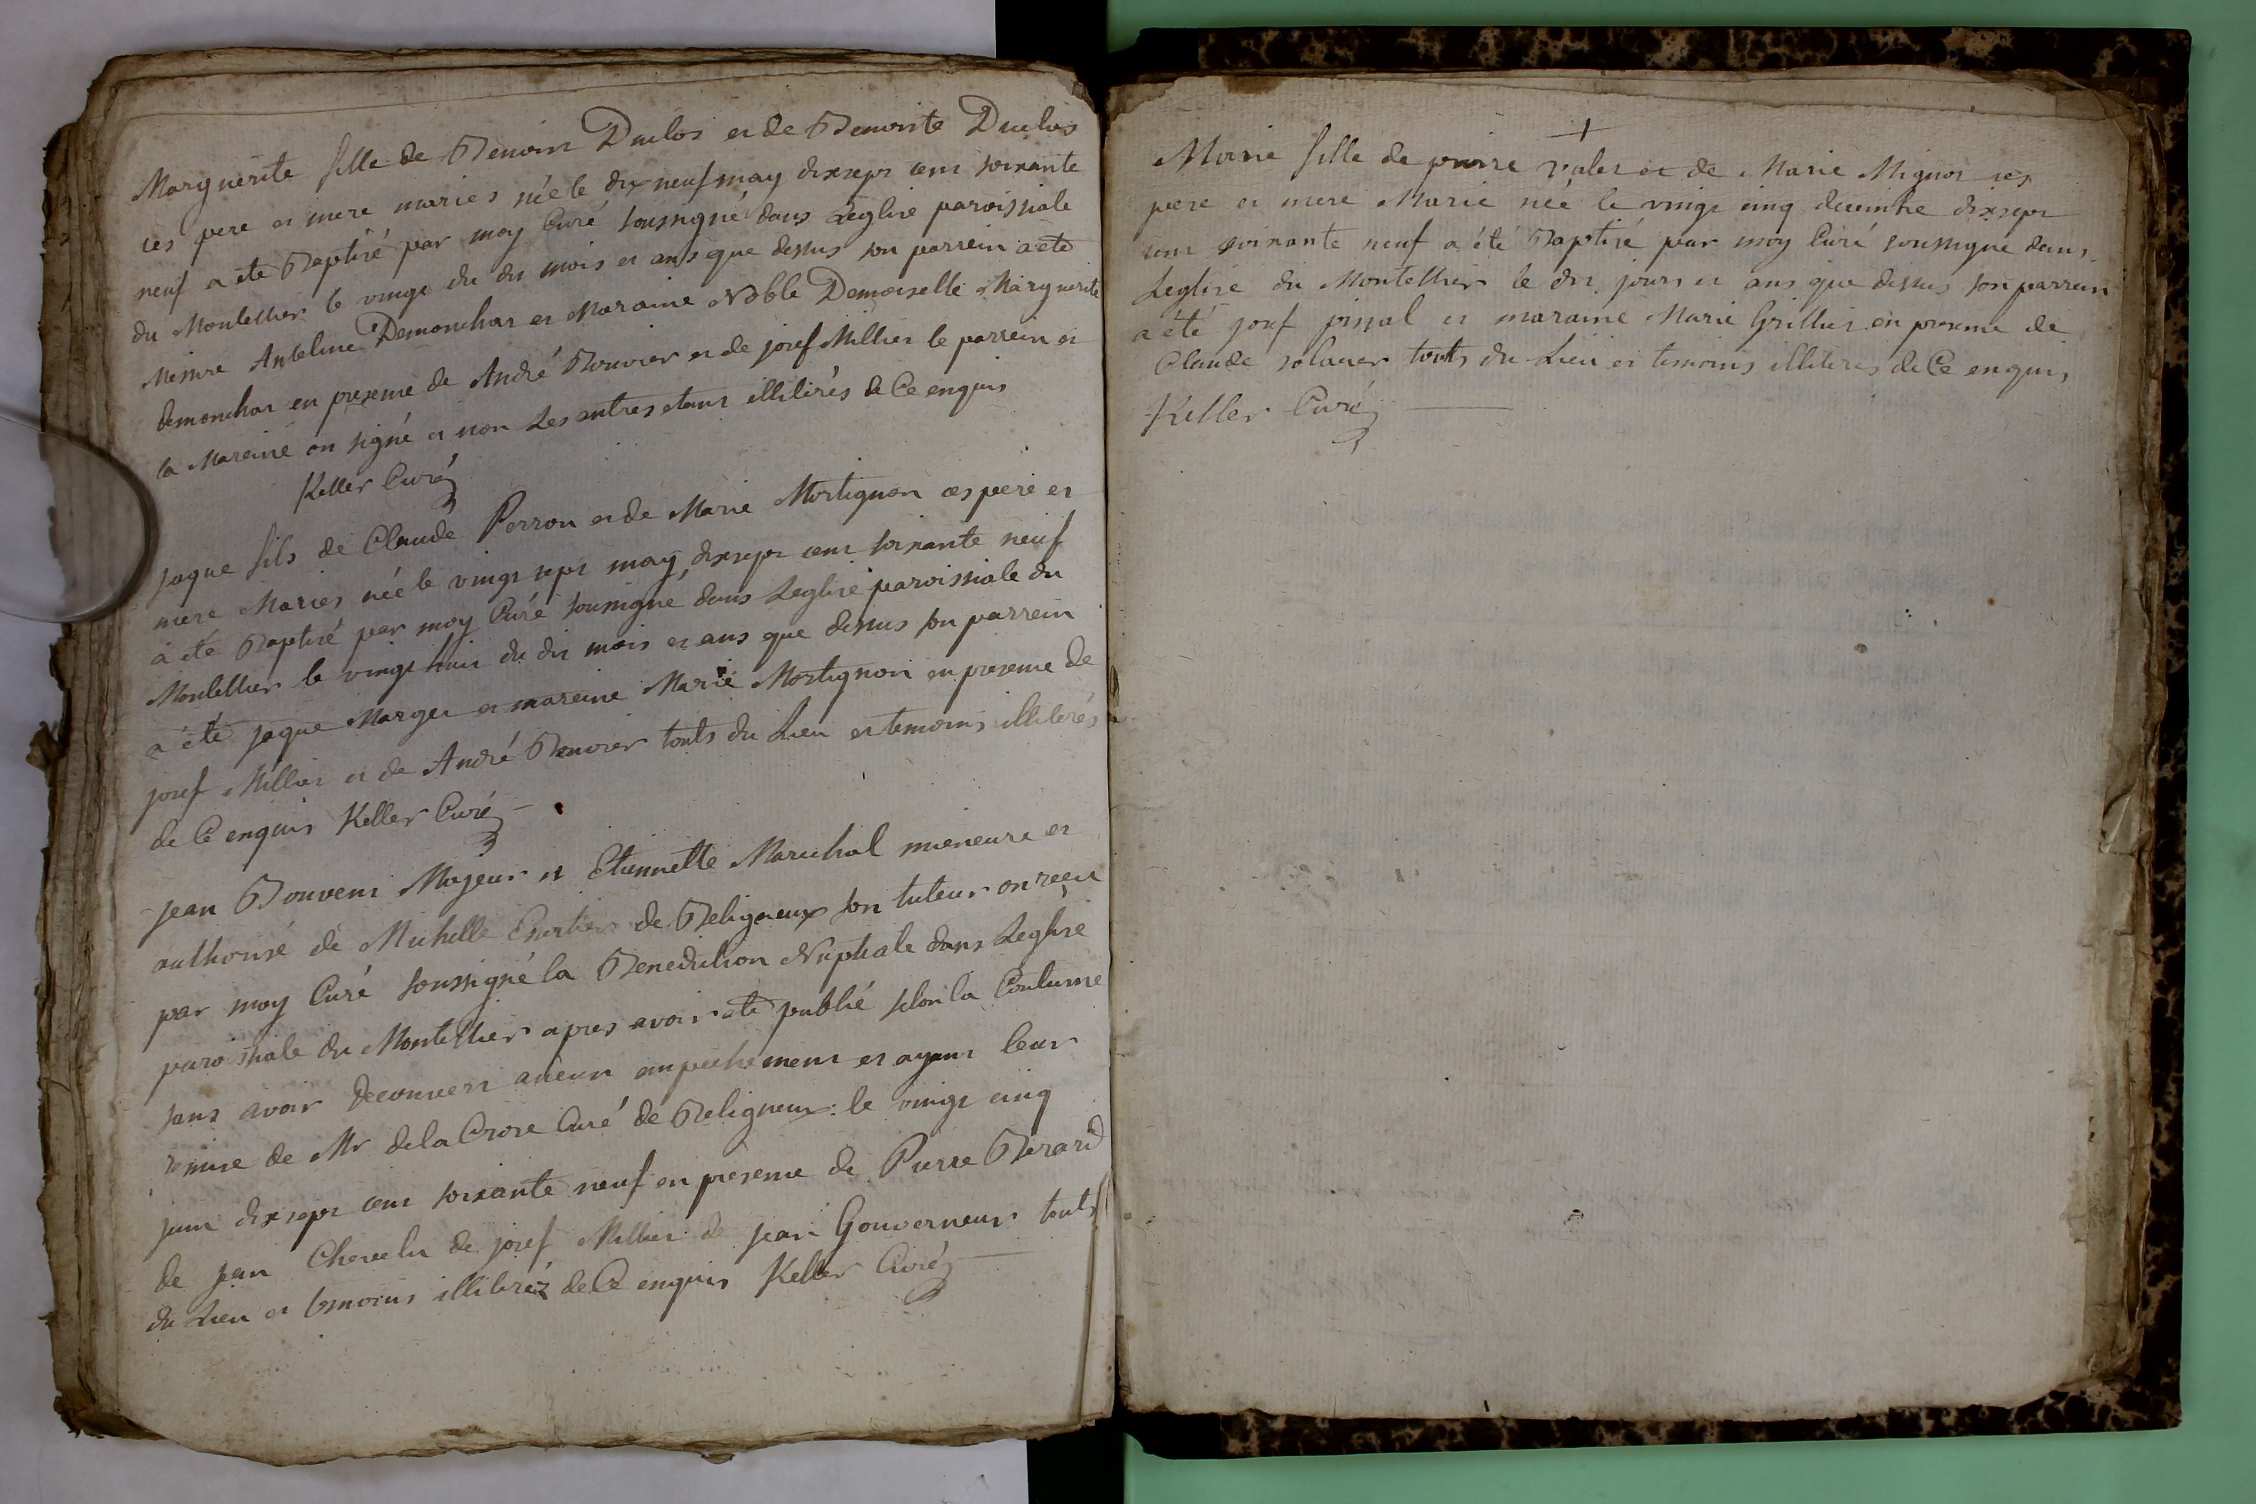 Marguerite fille de Benoit Duclos et de Benoite Duclos
ces pere et mere mariés née le dixneuf may dixsept cent soixante
neuf a ete Baptisé par moy Curé soussigné dans Leglise paroissiale
du Montellier le vingt du dit mois et ans que dessus son parrein a eté
Messire Antelme Demonchat et Maraine Noble Demoiselle Marguerite
demonchat en presence de André Bouvier et de josef Millier le parrein et
la Mareine on signé et non Les autres etant illiterés de Ce enquis
Keller Curé
jaque fils de Claude Perron et de Marie Mortignon ces pere et
mere Mariés née le vingt sept may dixsept cent soixante neuf
a ete Baptisé par moy Curé sousigné dans Leglise paroissiale du
Montellier le vingt huit du dit mois et ans que dessus son parrein
a été jaque Marget et mareine Marie Mortignon en presence de
josef Millier et de André Bouvier touts du Lieu et temoins illiterés
de Ce enquis Keller Curé
jean Bouvent Majeur et Etiennette Marechal mieneure et
authorisé de Michelle de Beligneux son tuteur on reçu
par moy Curé soussigné la Benediction Nuptiale dans Leglise
paroissiale du Montellier apres avoir ete publié selon la Coutume
sans avoir decouvert aucun empechement et ayant leur
remise de Mr dela Crose Curé de Beligneux le vingt cinq
juin dixsept cent soixante neuf en presence de Pierre Berard
de jean de josef Millier de jean Gouverneur touts
du Lieu et temoins illiteréz de Ce enquis Keller Curé
+
Marie fille de pierre valet et de Marie Mignot ces
pere et mere Marié née le vingt cinq decembre dixsept
cent soixante neuf a été Baptisé par moy Curé soussigné dans
Leglise du Montellier le dit jours et ans que dessus son parrein
a été josef et maraine Marie Grillier en presence de
Claude touts du Lieu et temoins illiterés de Ce enquis
Keller Curé